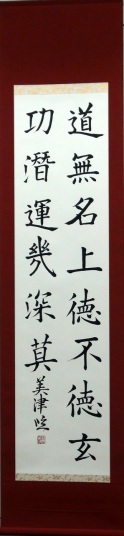 道無名上徳不徳玄
功潛運幾深莫
美津